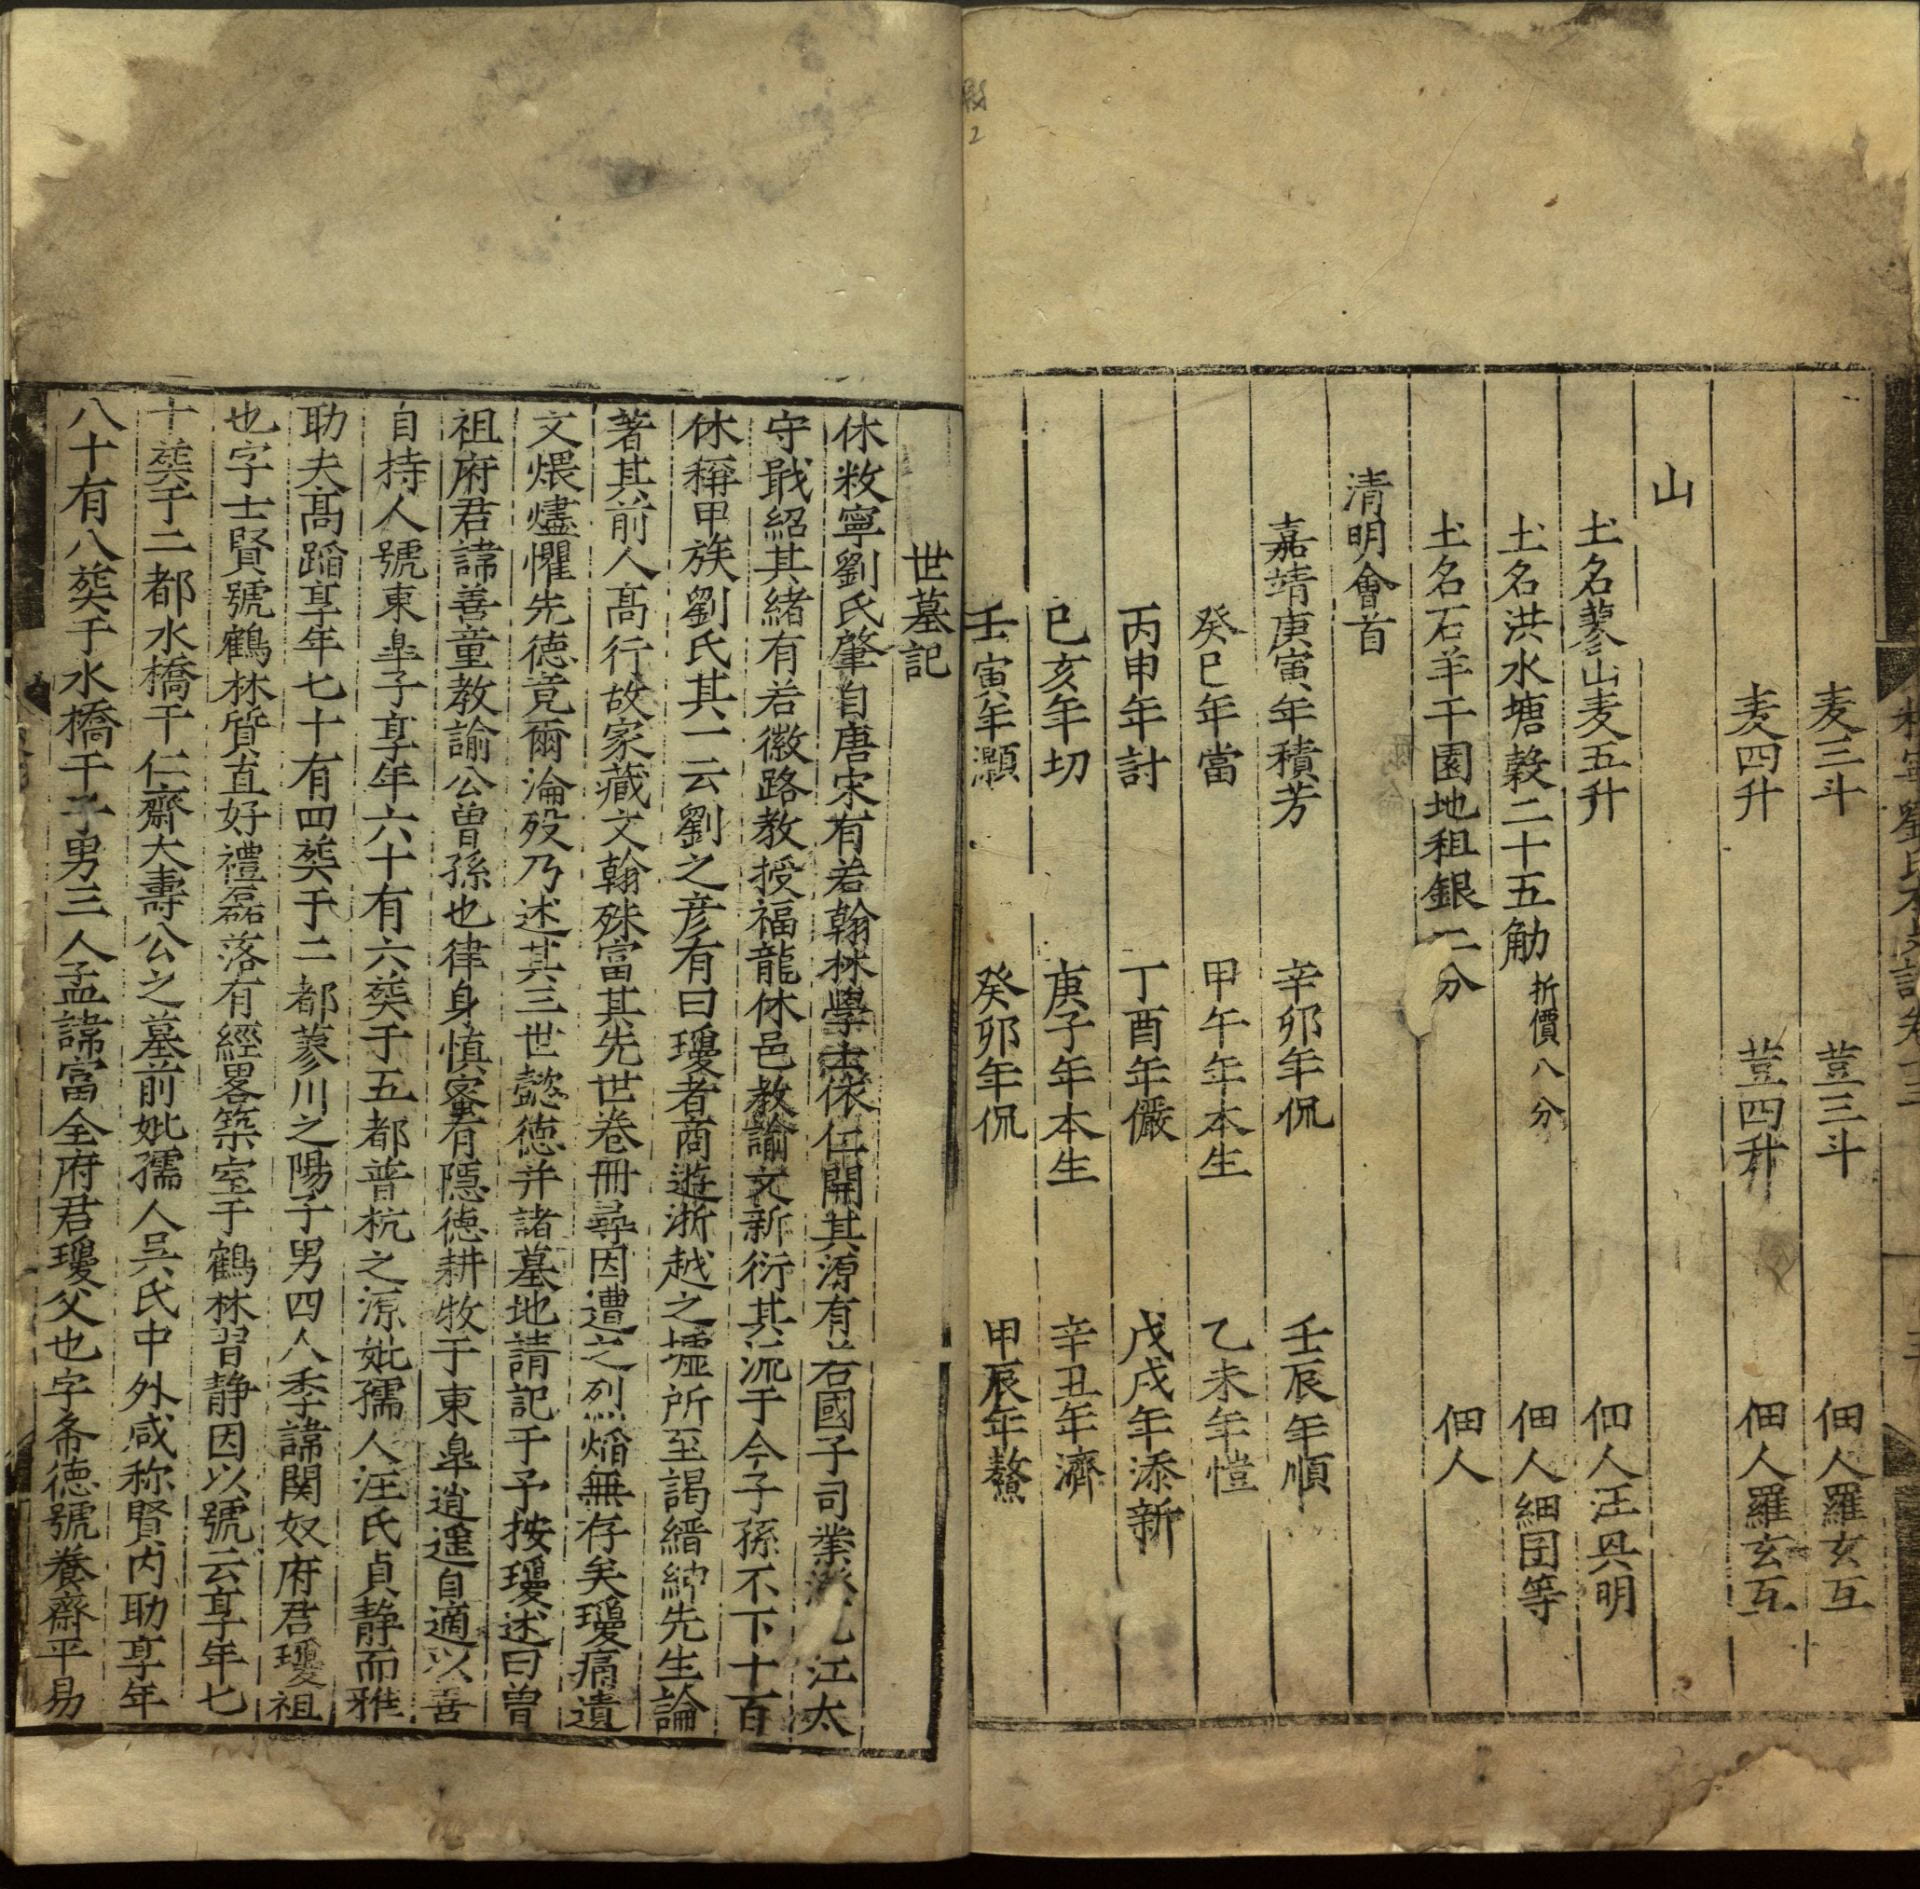 麦三斗 荳三斗 佃人羅玄互
麦四升 荳四升 佃人羅玄互
山
土名蓼山麦五升 佃人汪具明
土名洪水塘穀二十五觔 折價八分 佃人細囝等
土名石羊干園地租銀二分 佃人
清明會首
嘉靖庚寅年積芳 辛卯年侃 壬辰年順
癸巳年當 甲午年本生 乙未年愷
丙申年討 丁酉年儼 戊戌年添新
己亥年切 庚子年本生 辛丑年濟
壬寅年灝 癸卯年侃 甲辰年鰲
世墓記
休敉寧劉氏肇自唐宋有若翰林學士依仁開其源有若國子司業 江太
守戢紹其緒有若徽路教授福龍休邑教諭文新衍其流于今子孫不下十百
休稱甲族劉氏其一云劉之彦有曰瓊者商遊浙越之墟所至謁縉紳先生論
著其前人髙行故家藏文翰殊富其先世卷冊尋因遭之烈熖無存矣瓊痛遺
文煨燼懼先德竟爾淪殁乃述其三世懿德并諸墓地請記于予按瓊述曰曽
祖府君諱善童教諭公曽孫也律身慎密有隱德耕牧于東臯逍遥自適以善
自持人號東臯子享年六十有六塟于五都普杭之源妣孺人汪氏貞静而雅
助夫髙蹈享年七十有四塟于二都蓼川之陽子男四人季諱関奴府君瓊祖
也字士賢號鶴林質直好禮磊落有經畧築室于鶴林習静因以號云享年七
十塟于二都水橋干仁齋大壽公之墓前妣孺人吳氏中外咸称賢内助享年
八十有八塟于水橋干子男三人孟諱富全府君瓊父也字希德號養齋平易